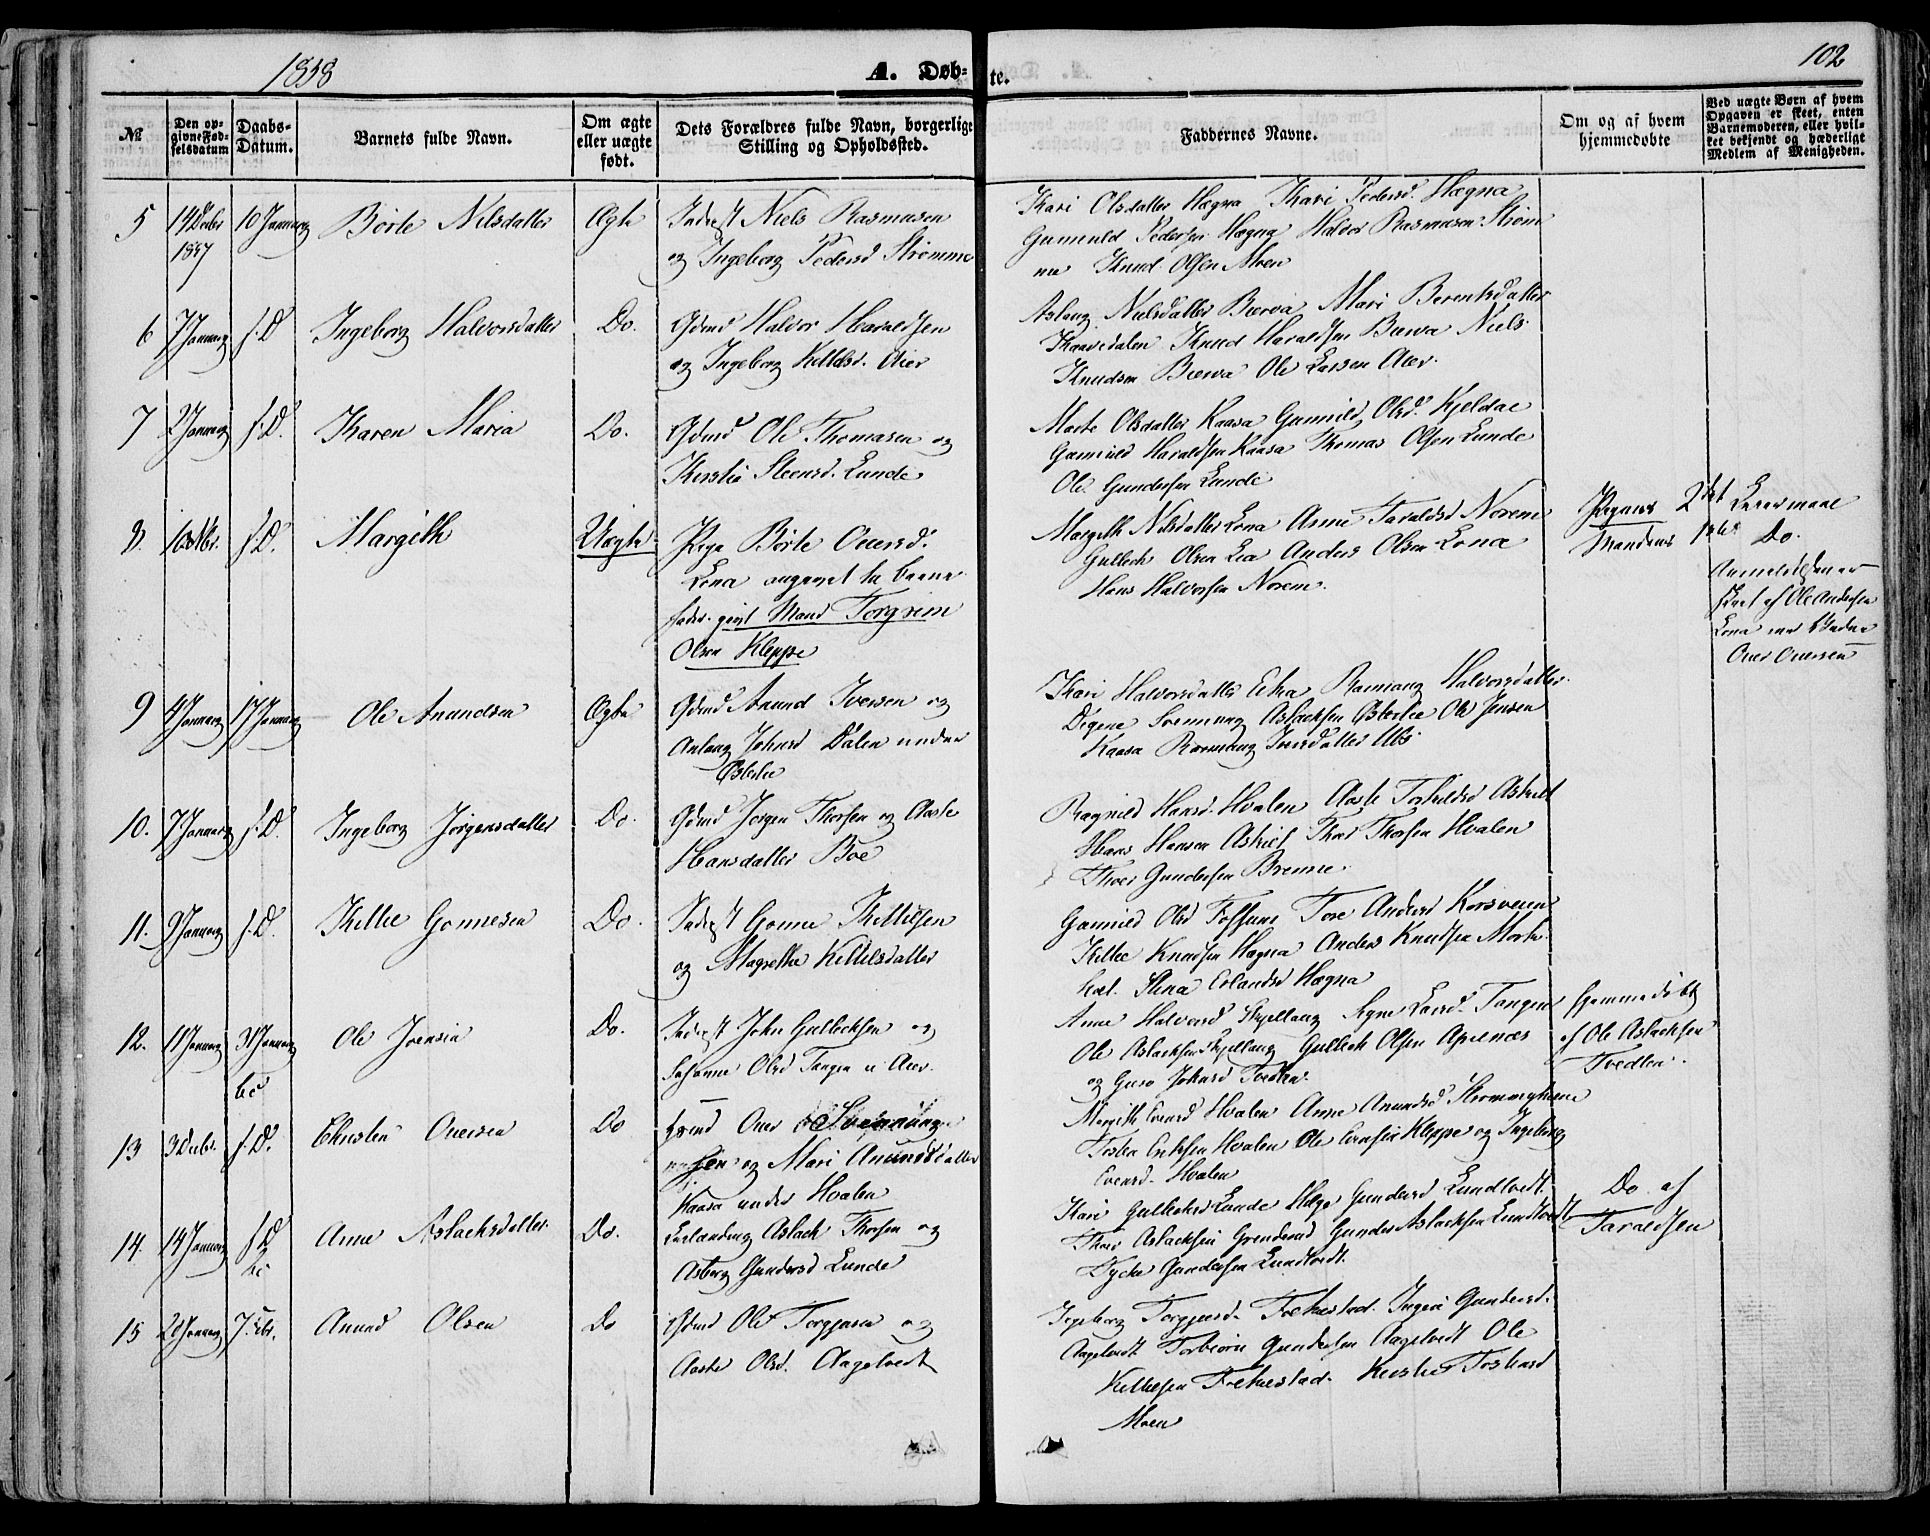 1858
A. Døb-
te.
102
№
Den op-
givne Fød-
selsdatum
Daabs-
Datum.
Barnets fulde Navn.
Om ægte
eller uægte
født.
Dets Forældres fulde Navn, borgerlige
Stilling og Opholdssted.
Faddernes Navne.
Om og af hvem
hjemmedøbte
Ved uægte Børn af hvem
Opgaven er skeet, enten
Barnemoderen, eller hvil-
ket bekjendt og hæderligt
Medlem af Menigheden.
5
14 Decbr
1857
10 January
Børte Nilsdatter
Ægte
Inderst Niels Rasmusen
og Ingeborg Pedersd Strømme
Kari Olsdatter Hægna Kari Pedersd. Hægna
Gunuld Pedersen Hægna Halvor Rasmusen Strøm
me Knud Olsen Moen
6
7 January
s. D
Ingeborg Halvorsdatter
Do.
Gdmd Halvor Haraldsen
og Ingeborg Kittilsd. Aier
Aslaug Nielsdatter Bærva Mari Berentsdatter
Knud Haraldsen Bærva Niels
Knudsen Bærva Ole Larsen Aier.
7
2 January
s. D.
Karen Maria
Do.
Gdmd Ole Thomasen og
Kerstie Steensd. Lunde
Marte Olsdatter Kaasa Gunnild Olsd. Kjeldal
Gunnild Haraldsen Kaasa Thomas Olsen Lunde
Ole Gundersen Lunde
8.
s. D.
Margith
Uægte
Pige Børte Oversd.
Lona angivet til barne
fader givt Mand Torgrim
Olsen Kleppe
Margith Nilsdatter Lona Anne Taraldsd Norem
Gulleck Olsen Lia Anders Olsen Lona
Hans Halvorsen Norem.
Pigens 2det Leiermaal
Mandens 1ste Do.
Anmeldelsen er
skeet af Ole Andersen
Lona
Over Oversen
9
4 January
17 January
Ole Anundsen
Ægte
Gdmd Anund Iversen og
Aslaug Johnsd Dalen under
Østerlie
Kari Halvorsdatter Ramnaug Halvorsdatter
Svennung Aslacksen Østerlie Ole Jensen
Kaasa Ramnaug Iversdatter
10.
7 January
s. D.
Ingeborg Jørgensdatter
Do.
Gdmd Jørgen Thorsen og Aaste
Hansdatter Boe
Ragnild Hansd. Hvalen Aaste Torkildsd Askilt
Hans Hansen Askilt Thor Thorsen Hvalen
Thor Gundersen Brenne
11.
9 January
s. D.
Kittil Gonnesen
Do.
Inderst Gonne Kittilsen
og Magrethe Kittelsdatter
Gunnild Olsd Fossum Tore Andersd Korsveien
Kittil Knudsen Hægna Anders Knudsen Marke
Erlandsd Hægna
12.
11 January
31 January
Ole
Do.
Inderst John Gullecksen og
Johanne Olsd Tangen u Aier.
Anne Halvorsd Skjellaug Signe Larsd. Tangen
Ole Aslacksen Skjellaug Gulleck Olsen Apenæs
og Guro Johnsd Tvedten.
hjemmedøbt
af Ole Aslacksen
Tvedten.
13
3 Decbr.
s. D.
Christen Oversen
Do
Over Svennung
sen og Mari Anundsdatter
Kaasa under Hvalen
Margith Evensd Hvalen Anne Anundsd
Torber Eriksen Hvalen Ole Kleppe og Ingeborg
Evensd. Hvalen
14.
14 January
s. D
Anne Aslacksdatter
Do.
Aslack Thorsen og
Asberg Gundersd Lunde
Kari Lunde Hæge Gundersd Lundtvedt.
Thor Aslacksen Grenderud Gunder Aslacksen Lundtvedt
Gundersen Lundtvedt.
Do. af
Taraldsen
15
7 Febr.
Anund Olsen
Do
Gdmd Ole Torgjusen og
Aaste Olsd. Aagetvedt
Ingeborg Torgjusd. Folkestad. Ingeri Gundersd.
Aagetvedt Torbiørn Gundersen Aagetvedt Ole
Kittilsen Folkestad. Kerstie
Moen